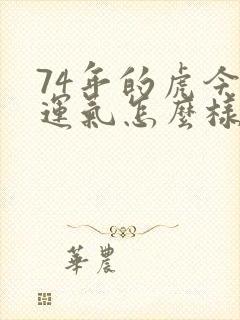 74年的虎今
運氣怎麼樣
華農